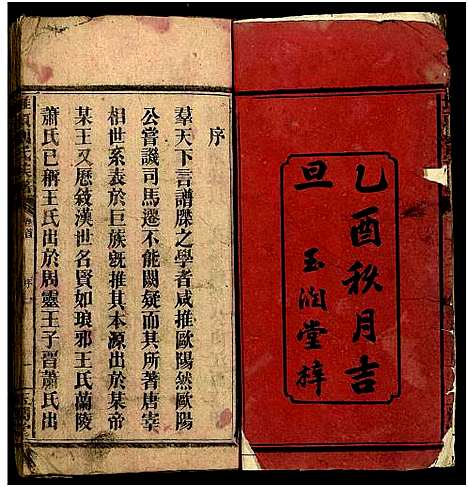 乙酉秋月吉
旦
玉潤堂梓
序
羣天下言譜牒之學者咸推歐陽然歐陽
公嘗譏司馬遷不能闕疑而其所著唐宰
相世系表於巨族旣推其本源出於某帝
某王又厯敍漢世名賢如琅邪王氏蘭陵
蕭氏已稱王氏出於周靈王子晉蕭氏出